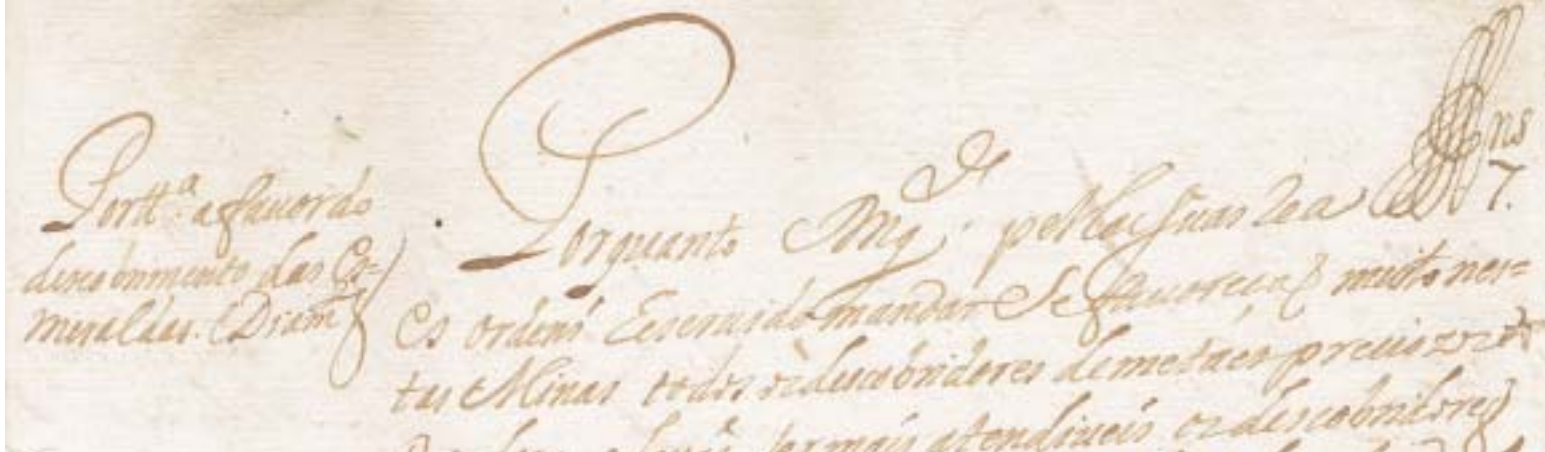 Portt.ª a fauordo
descobrimento das Es=
meraldas. e Diam.es
Porquanto Mag.de pellas suas Rea
ns
7.
es ordens he seruido mandar Se fauoreça muito nes=
tas Minas todos os descobridores de metaes preuiozos
ser mais atendiueis os descobridores